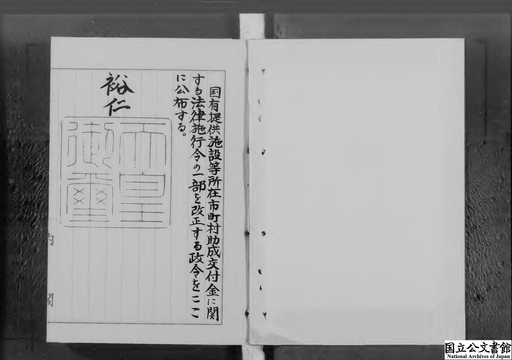 国有提供施設等所在市町村助成交付金に関
する法律施行令の一部を改正する政令をここ
に公布する。
裕仁
天皇
御璽
内閣
国立公文書館
National Archives of Japan